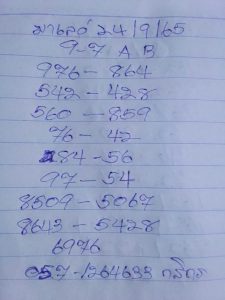 มาเลย์ 24/9/65
9-7 A B
976-864
542-428
560-859
76-42
84-56
97-54
8509-5067
8643-5428
6976
057-1264633